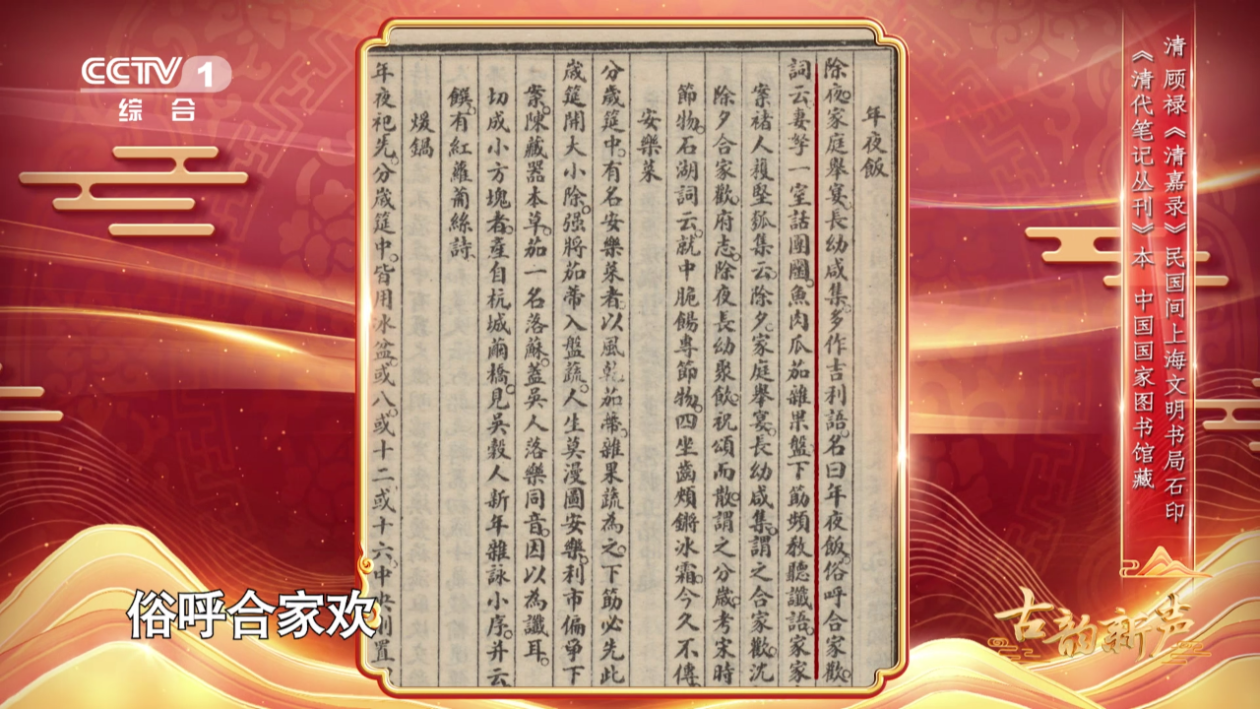 CCTV 1
综合
年夜飯
除夜。家庭舉宴。長幼咸集。多作吉利語。名曰年夜飯。俗呼合家歡。
詞云。妻孥一室話團圞。魚肉瓜茄雜果盤。下箸頻教聽讖語。家家
案。褚人穫堅狐集云。除夕。家庭舉宴。長幼咸集。謂之合家歡。沈
除夕合家歡。府志。除夜長幼聚飲。祝頌而散。謂之分歲。考宋時
節物。石湖詞云。就中脆餳專節物。四坐齒頰鏘冰霜。今久不傳
安樂菜
分歲筵中。有名安樂菜者。以風乾茄蒂。雜果蔬為之。下筯必先此
歲筵開大小除。强將茄蒂入盤蔬。人生莫漫圖安樂。利市偏爭下
案。陳藏器本草。茄一名落蘇。蓋吳人落樂同音。因以為讖耳。
切成小方塊者。產自杭城繭橋。見吳穀人新年雜詠小序。并云
饌。有紅蘿蔔絲詩。
煖鍋
年夜祀先。分歲筵中。皆用冰盆。或八。或十二。或十六。中央則置
清 顾禄《清嘉录》民国间上海文明书局石印
《清代笔记丛刊》本 中国国家图书馆藏
俗呼合家欢
古韵新声